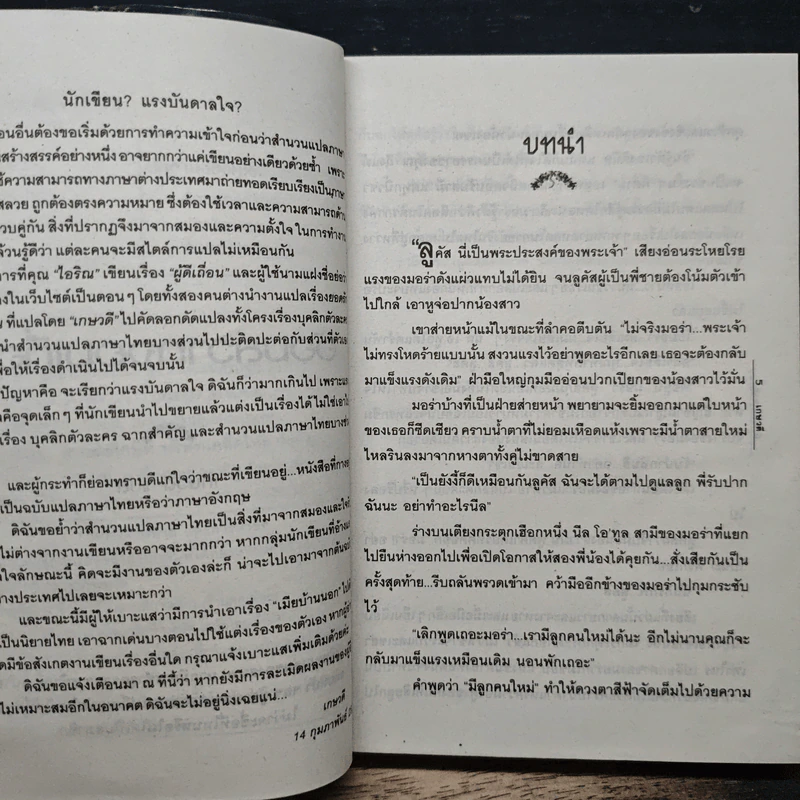 นักเขียน? แรงบันดาลใจ?
อนอื่นต้องขอเริ่มด้วยการทำความเข้าใจก่อนว่าสำนวนแปลภาษา
สร้างสรรค์อย่างหนึ่ง อาจยากกว่าแค่เขียนอย่างเดียวด้วยซ้ำ เพราะ
ใช้ความสามารถทางภาษาต่างประเทศมาถ่ายทอดเรียบเรียงเป็นภาษา
สละสลวย ถูกต้องตรงความหมาย ซึ่งต้องใช้เวลาและความสามารถด้าน
วบคู่กัน สิ่งที่ปรากฏจึงมาจากสมองและความตั้งใจ ในการทำงาน
ล้วนรู้ดีว่า แต่ละคนจะมีสไตล์การแปลไม่เหมือนกัน
การที่คุณ "ไอริณ" เขียนเรื่อง "ผู้ดีเถื่อน" และผู้ใช้นามแฝงชื่อย่อว่า
งในเว็บไซต์เป็นตอน ๆ โดยทั้งสองคนต่างนำงานแปลเรื่องยอดรัก
ที่แปลโดย "เกษวดี" ไปคัดลอกดัดแปลงทั้งโครงเรื่องบุคลิกตัวละคร
นำสำนวนแปลภาษาไทยบางส่วนไปปะติดปะต่อกับส่วนที่ตัวเอง
เพื่อให้เรื่องดำเนินไปได้จนจบนั้น
ปัญหาคือ จะเรียกว่าแรงบันดาลใจ ดิฉันก็ว่ามากเกินไป เพราะแรง
คือจุดเล็ก ๆ ที่นักเขียนนำไปขยายแล้วแต่งเป็นเรื่องได้ ไม่ใช่เอาไป
เรื่อง บุคลิกตัวละคร ฉากสำคัญ และสำนวนแปลภาษาไทยบางช่วง
และผู้กระทำก็ย่อมทราบดีแก่ใจว่าขณะที่เขียนอยู่...หนังสือที่กาง
เป็นฉบับแปลภาษาไทยหรือว่าภาษาอังกฤษ
ดิฉันขอย้ำว่าสำนวนแปลภาษาไทยเป็นสิ่งที่มาจากสมองและใจ
ไม่ต่างจากงานเขียนหรืออาจจะมากกว่า หากกลุ่มนักเขียนที่อ้าง
ใจลักษณะนี้ คิดจะมีงานของตัวเองล่ะก็ น่าจะไปเอามาจากต้นฉบับ
างประเทศไปเลยจะเหมาะกว่า
และขณะนี้มีผู้ให้เบาะแสว่ามีการนำเอาเรื่อง "เมียบ้านนอก" ไป
เป็นนิยายไทย เอาฉากเด่นบางตอนไปใช้แต่งเรื่องของตัวเอง หากผู้
ดมีข้อสังเกตงานเขียนเรื่องอื่นใด กรุณาแจ้งเบาะแสเพิ่มเติมด้วยค่ะ
ดิฉันขอแจ้งเตือนมา ณ ที่นี้ว่า หากยังมีการละเมิดผลงานของ
ไม่เหมาะสมอีกในอนาคต ดิฉันจะไม่อยู่นิ่งเฉยแน่...
เกษวดี
14 กุมภาพันธ์
บทนำ
"ลูคัส นี่เป็นพระประสงค์ของพระเจ้า" เสียงอ่อนระโหยโรย
แรงของมอร่าดังแผ่วแทบไม่ได้ยิน จนลูคัสผู้เป็นพี่ชายต้องโน้มตัวเข้า
ไปใกล้ เอาหูจ่อปากน้องสาว
เขาส่ายหน้าแม้ในขณะที่ลำคอตีบตัน "ไม่จริงมอร่า...พระเจ้า
ไม่ทรงโหดร้ายแบบนั้น สงวนแรงไว้อย่าพูดอะไรอีกเลย เธอจะต้องกลับ
มาแข็งแรงดังเดิม" ฝ่ามือใหญ่กุมมืออ่อนปวกเปียกของน้องสาวไว้มั่น
มอร่าบ้างที่เป็นฝ่ายส่ายหน้า พยายามจะยิ้มออกมาแต่ใบหน้า
ของเธอก็ซีดเซียว คราบน้ำตาที่ไม่ยอมเหือดแห้งเพราะมีน้ำตาสายใหม่
ไหลรินลงมาจากหางตาทั้งคู่ไม่ขาดสาย
"เป็นยังงี้ก็ดีเหมือนกันลูคัส ฉันจะได้ตามไปดูแลลูก พี่รับปาก
ฉันนะ อย่าทำอะไรนีล"
ร่างบนเตียงกระตุกเฮือกหนึ่ง นีล โอ'ทูล สามีของมอร่าที่แยก
ไปยืนห่างออกไปเพื่อเปิดโอกาสให้สองพี่น้องได้คุยกัน...สั่งเสียกันเป็น
ครั้งสุดท้าย...รีบถลันพรวดเข้ามา คว้ามืออีกข้างของมอร่าไปกุมกระชับ
ไว้
"เลิกพูดเถอะมอร่า...เรามีลูกคนใหม่ได้นะ อีกไม่นานคุณก็จะ
กลับมาแข็งแรงเหมือนเดิม นอนพักเถอะ"
คำพูดว่า "มีลูกคนใหม่" ทำให้ดวงตาสีฟ้าจัดเต็มไปด้วยความ
5
เกษวดี